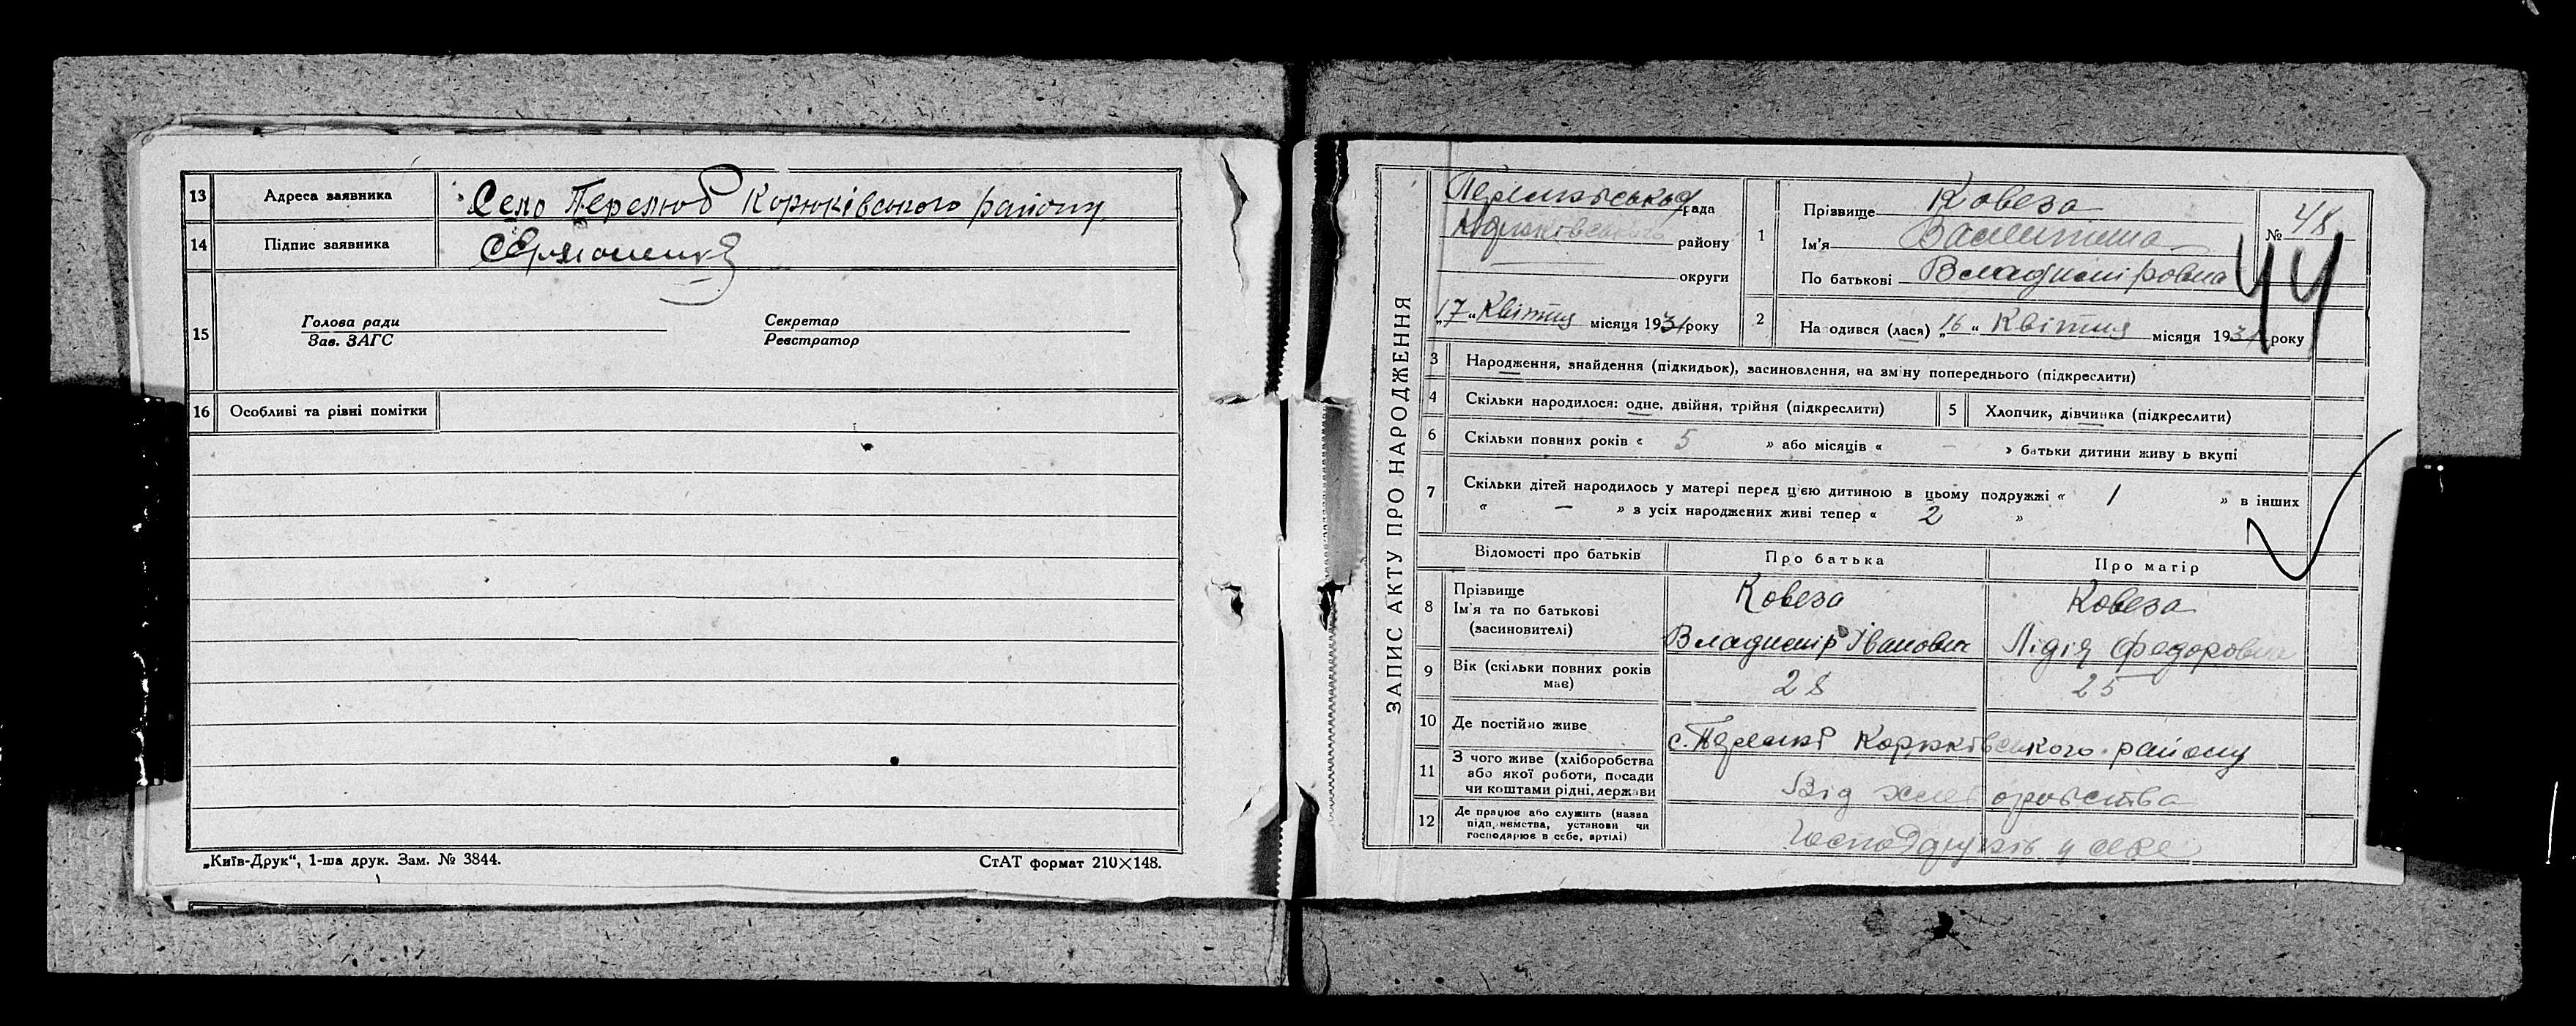 13 Адреса заявника Село Перелюб Корюківського району
14 Підпис заявника
15 Голова ради Секретар
Зав. ЗАГС Реєстратор
16 Особливі та рівні помітки
„Київ-Друк“, 1-ша друк. Зам. № 3844. СтАТ формат 210×148.
ЗАПИС АКТУ ПРО НАРОДЖЕННЯ
рада
Корюківського району
округи
„17“ Квітня місяця 1931 року
1 Прізвище Ковеза
Ім'я Валентина
По батькові Владимировна
№ 48
44
2 На одився (лася) „16“ Квітня місяця 1931 року
3 Народження, знайдення (підкидьок), засиновлення, на зміну попереднього (підкреслити)
4 Скільки народилося: одне, двійня, трійня (підкреслити) 5 Хлопчик, дівчинка (підкреслити)
6 Скільки повних років « 5 » або місяців « – » батьки дитини живу ь вкупі
7 Скільки дітей народилось у матері перед цією дитиною в цьому подружжі « 1 » в інших
« – » з усіх народжених живі тепер « 2 »
Відомості про батьків Про батька Про матір
8 Прізвище Ковеза Ковеза
Ім'я та по батькові
(засиновителі) Владимир Іванович Лідія Федоровна
9 Вік (скільки повних років має) 28 25
10 Де постійно живе с. Корюківського району
11 З чого живе (хліборобства
або якої роботи, посади
чи коштами рідні, держави Від хліборобства
12 Де працює або служить (назва
підприємства, установи чи
господарює в себе, артілі) у себе